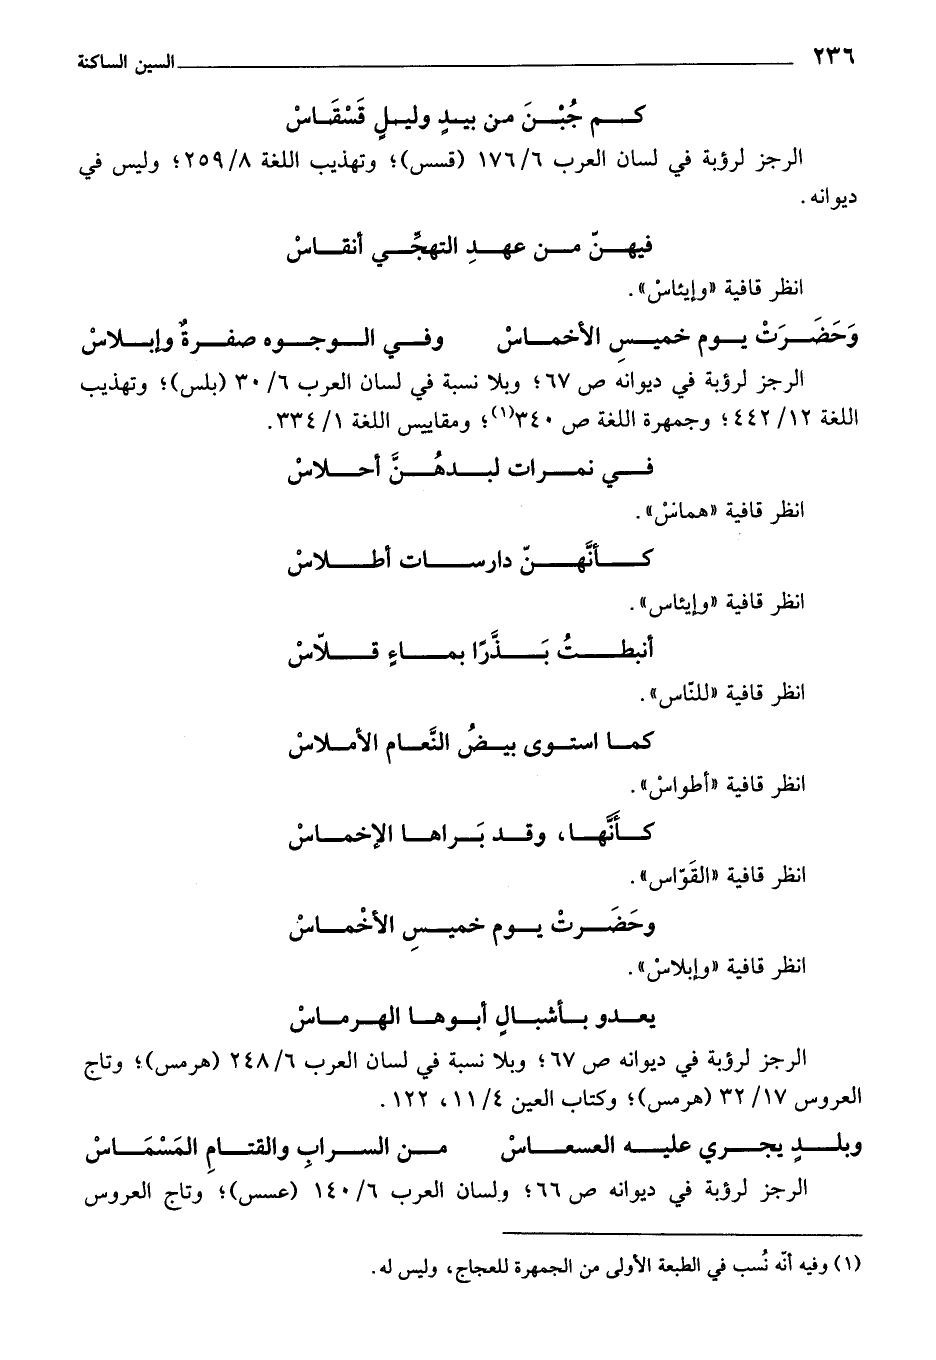 ٢٣٦ السين الساكنة
كم جُبْنَ من بيدٍ وليلٍ قَسْقَاسْ
الرجز لرؤبة في لسان العرب ١٧٦/٦ (قسس)؛ وتهذيب اللغة ٢٥٩/٨؛ وليس في
ديوانه.
فيهنّ من عهدِ التهجِّي أنقاسْ
انظر قافية «وإيئاسْ».
وَحَضَرَتْ يوم خميسِ الأخماسْ وفي الوجوه صفرةٌ وإبلاسْ
الرجز لرؤبة في ديوانه ص ٦٧؛ وبلا نسبة في لسان العرب ٣٠/٦ (بلس)؛ وتهذيب
اللغة ٤٤٢/١٢؛ وجمهرة اللغة ص ٣٤٠(١)؛ ومقاييس اللغة ٣٣٤/١.
في نمرات لبدهُنَّ أحلاسْ
انظر قافية «هماسْ».
كأنَّهنّ دارسات أطلاسْ
انظر قافية «وإيئاس».
أنبطتُ بَذَّرًا بماءٍ قلاّسْ
انظر قافية «للنّاس».
كما استوى بيضُ النَّعام الأملاسْ
انظر قافية «أطواسْ».
كأنَّها، وقد بَراها الإخماسْ
انظر قافية «القَوّاس».
وحَضَرتْ يوم خميسِ الأخْماسْ
انظر قافية «وإبلاسْ».
يعدو بأشبالٍ أبوها الهرماسْ
الرجز لرؤبة في ديوانه ص ٦٧؛ وبلا نسبة في لسان العرب ٢٤٨/٦ (هرمس)؛ وتاج
العروس ٣٢/١٧ (هرمس)؛ وكتاب العين ١١/٤، ١٢٢.
وبلدٍ يجري عليه العسعاسْ من السرابِ والقتامِ المَسْمَاسْ
الرجز لرؤبة في ديوانه ص ٦٦؛ ولسان العرب ١٤٠/٦ (عسس)؛ وتاج العروس
(١) وفيه أنّه نُسب في الطبعة الأولى من الجمهرة للعجاج، وليس له.